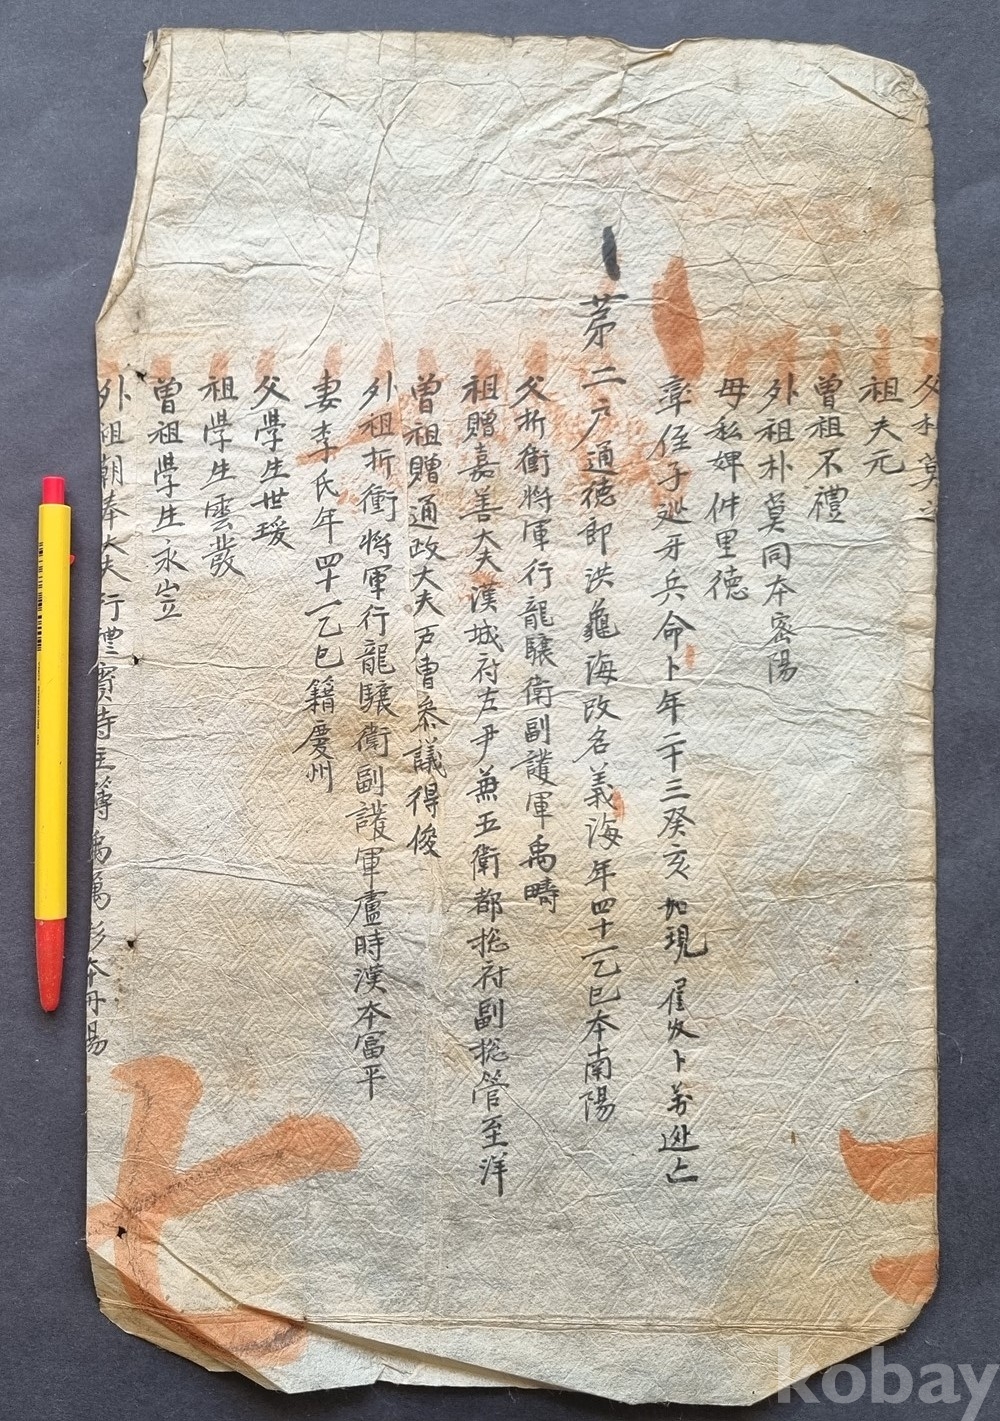 父朴莫
祖夫元
曾祖不禮
外祖朴莫同本密陽
母私婢件里德
率侄子巡牙兵命卜年二十三癸亥加現 卜 逃亡
第二戶通德郎洪龜海改名義海年四十一乙巳本南陽
父折衝將軍行龍驤衛副護軍禹疇
祖贈嘉善大夫漢城府左尹兼五衛都摠府副摠管至洋
曾祖贈通政大夫戶曹參議得俊
外祖折衝將軍行龍驤衛副護軍盧時漢本富平
妻李氏年四十一乙巳籍慶州
父學生世瑗
祖學生雲發
曾祖學生永岦
外祖朝奉大夫行禮賓寺主簿禹萬彩本丹陽
kobay